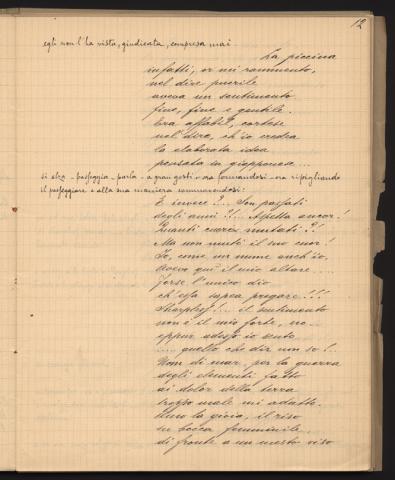 12
egli non l'ha vista, giudicata, compresa mai
La piccina
infatti, or mi rammento,
nel dire puerile
aveva un sentimento
fine, fine e gentile.
Era affabil, cortese
nel dire, ch'io credea
la elaborata idea
pensata in giapponese...
si alza - passeggia - parla - a gran gesti - ora fermandosi - ora ripigliando
il passeggiare e alla sua maniera commovendosi:
E invece?... Son passati
degli anni?!... Aspetta ancor!
Quanti cuori mutati?!
Ma non mutò il suo cuor!
Io, come un nume anch'io,
Avevo qui il mio altare...
Forse l'unico dio
ch'essa sapea pregare!!!
Sharpless!... il sentimento
non è il mio forte, no...
eppur adesso io sento
..... quello che dir non so!..
Uom di mar, per la guerra
degli elementi fatto
ai dolor della terra
troppo male mi adatto.
Amo la gioia, il riso
su bocca femminile
di fronte a un mesto viso